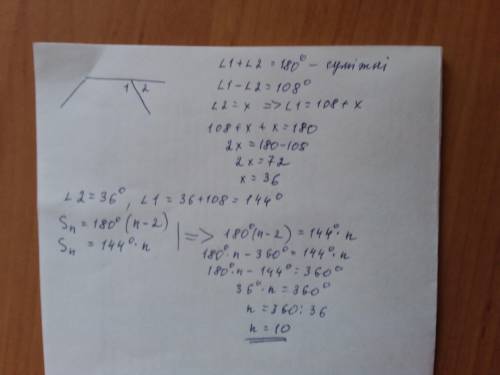 ∠1+∠2=180° – суміжні
1 2
∠1–∠2=108°
∠2=x =>∠1=108+x
108+x+x=180
2x=180-108
2x=72
x=36
∠2=36°, ∠1=36+108=144°
Sn=180°(n-2)
Sn=144°·n
=> 180°(n-2)=144°·n
180°·n-360°=144°·n
180°·n-144°=360°
36°·n=360°
n=360:36
n=10